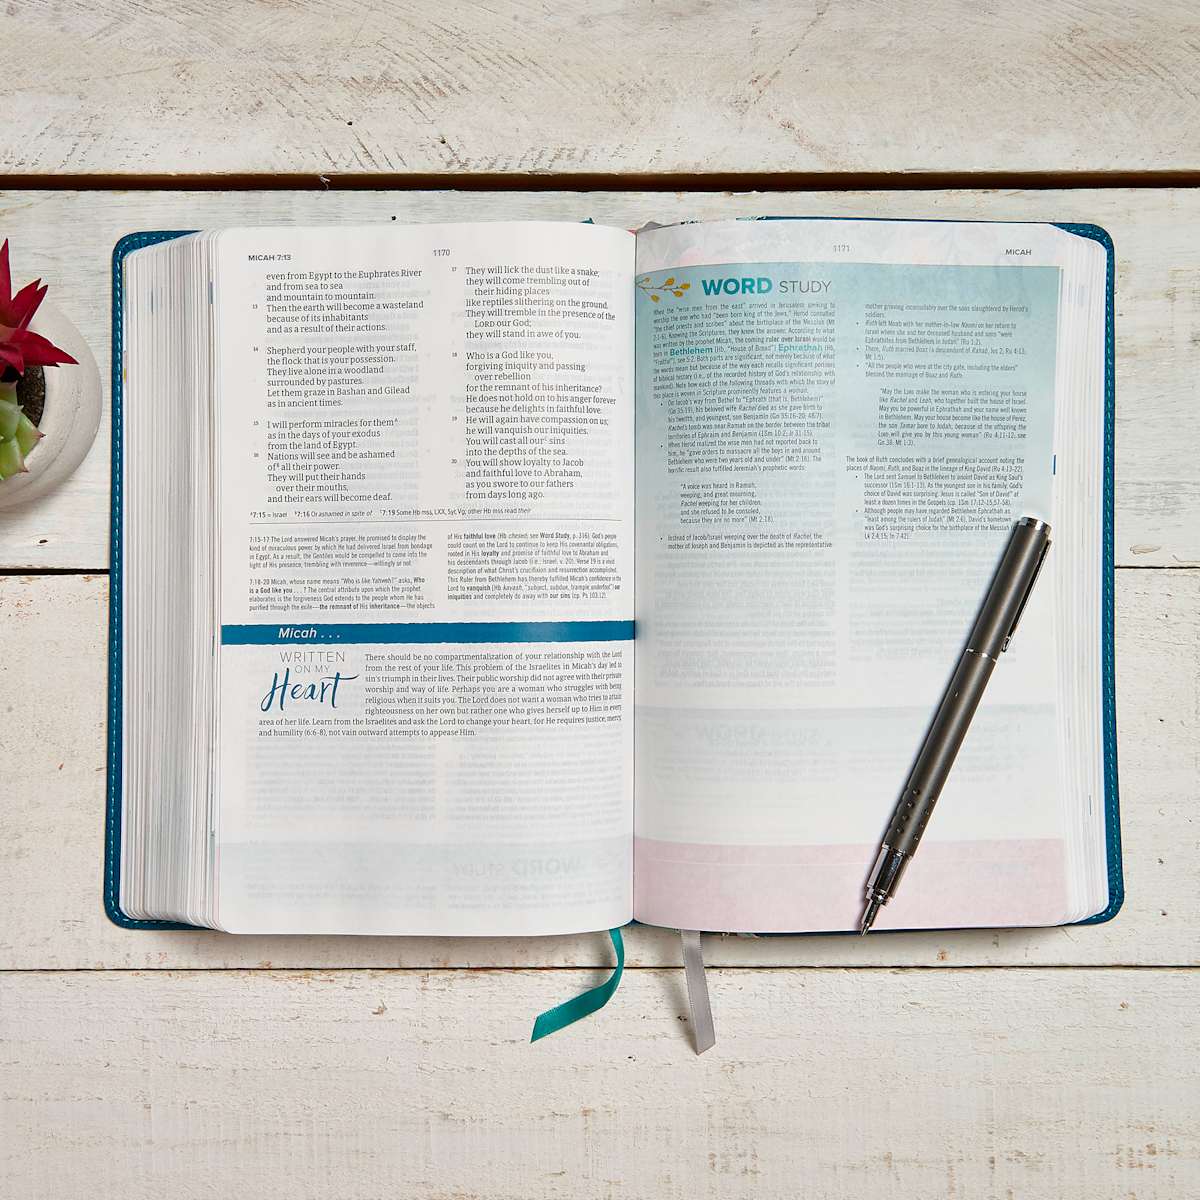 MICAH 7:13
1170
even from Egypt to the Euphrates River
and from sea to sea
and mountain to mountain.
13 Then the earth will become a wasteland
because of its inhabitants
and as a result of their actions.
14 Shepherd your people with your staff,
the flock that is your possession.
They live alone in a woodland
surrounded by pastures.
Let them graze in Bashan and Gilead
as in ancient times.
15 I will perform miracles for them
as in the days of your exodus
from the land of Egypt.
16 Nations will see and be ashamed
of all their power.
They will put their hands
over their mouths,
and their ears will become deaf.
17 They will lick the dust like a snake;
they will come trembling out of
their hiding places
like reptiles slithering on the ground.
They will tremble in the presence of the
LORD our God;
they will stand in awe of you.
18 Who is a God like you,
forgiving iniquity and passing
over rebellion
for the remnant of his inheritance?
He does not hold on to his anger forever
because he delights in faithful love.
19 He will again have compassion on us;
he will vanquish our iniquities.
You will cast all our sins
into the depths of the sea.
20 You will show loyalty to Jacob
and faithful love to Abraham,
as you swore to our fathers
from days long ago.
7:15 = Israel 7:16 Or ashamed in spite of 7:19 Some Hb mss, LXX, Syr, Vg; other Hb mss read their
7:15-17 The Lord answered Micah's prayer. He promised to display the
kind of miraculous power by which He had delivered Israel from bondage
in Egypt. As a result, the Gentiles would be compelled to come into the
light of His presence, trembling with reverence—willingly or not.
7:18-20 Micah, whose name means "Who is like Yahweh?" asks, Who
is a God like you . . . ? The central attribute upon which the prophet
elaborates is the forgiveness God extends to the people whom He has
purified through the exile—the remnant of His inheritance—the objects
of His faithful love (Hb chesed; see Word Study, p. 316). God's people
could count on the Lord to continue to keep His covenantal obligations,
rooted in His loyalty and promise of faithful love to Abraham and
his descendants through Jacob (i.e., Israel, v. 20). Verse 19 is a vivid
description of what Christ's crucifixion and resurrection accomplished.
This Ruler from Bethlehem has thereby fulfilled Micah's confidence in the
Lord to vanquish (Hb kavash, "subject, subdue, trample underfoot") our
iniquities and completely do away with our sins (cp. Ps 103:12).
Micah . . .
WRITTEN
ON MY
Heart
There should be no compartmentalization of your relationship with the Lord
from the rest of your life. This problem of the Israelites in Micah's day led to
sin's triumph in their lives. Their public worship did not agree with their private
worship and way of life. Perhaps you are a woman who struggles with being
religious when it suits you. The Lord does not want a woman who tries to attain
righteousness on her own but rather one who gives herself up to Him in every
area of her life. Learn from the Israelites and ask the Lord to change your heart, for He requires justice, mercy,
and humility (6:6-8), not vain outward attempts to appease Him.
1171
MICAH
WORD STUDY
When the "wise men from the east" arrived in Jerusalem seeking to
worship the one who had "been born king of the Jews," Herod consulted
"the chief priests and scribes" about the birthplace of the Messiah (Mt
2:1-6). Knowing the Scriptures, they knew the answer. According to what
was written by the prophet Micah, the coming ruler over Israel would be
born in Bethlehem (Hb, "House of Bread") Ephrathah (Hb,
"Fruitful"), see 5:2. Both parts are significant, not merely because of what
the words mean but because of the way each recalls significant portions
of biblical history (i.e., of the recorded history of God's relationship with
mankind). Note how each of the following threads with which the story of
this place is woven in Scripture prominently features a woman.
• On Jacob's way from Bethel to "Ephrath (that is, Bethlehem)"
(Gn 35:19), his beloved wife Rachel died as she gave birth to
his twelfth, and youngest, son Benjamin (Gn 35:16-20; 48:7).
Rachel's tomb was near Ramah on the border between the tribal
territories of Ephraim and Benjamin (1Sm 10:2; Jr 31:15).
• When Herod realized the wise men had not reported back to
him, he "gave orders to massacre all the boys in and around
Bethlehem who were two years old and under" (Mt 2:16). The
horrific result also fulfilled Jeremiah's prophetic words:
"A voice was heard in Ramah,
weeping, and great mourning,
Rachel weeping for her children;
and she refused to be consoled,
because they are no more" (Mt 2:18).
• Instead of Jacob/Israel weeping over the death of Rachel, the
mother of Joseph and Benjamin is depicted as the representative
mother grieving inconsolably over the sons slaughtered by Herod's
soldiers.
• Ruth left Moab with her mother-in-law Naomi on her return to
Israel where she and her deceased husband and sons "were
Ephrathites from Bethlehem in Judah" (Ru 1:2).
• There, Ruth married Boaz (a descendant of Rahab, Jos 2; Ru 4:13;
Mt 1:5).
• "All the people who were at the city gate, including the elders"
blessed the marriage of Boaz and Ruth:
"May the LORD make the woman who is entering your house
like Rachel and Leah, who together built the house of Israel.
May you be powerful in Ephrathah and your name well known
in Bethlehem. May your house become like the house of Perez,
the son Tamar bore to Judah, because of the offspring the
LORD will give you by this young woman" (Ru 4:11-12; see
Gn 38; Mt 1:3).
The book of Ruth concludes with a brief genealogical account noting the
places of Naomi, Ruth, and Boaz in the lineage of King David (Ru 4:13-22).
• The Lord sent Samuel to Bethlehem to anoint David as King Saul's
successor (1Sm 16:1-13). As the youngest son in his family, God's
choice of David was surprising. Jesus is called "Son of David" at
least a dozen times in the Gospels (cp. 1Sm 17:12-15,57-58).
• Although people may have regarded Bethlehem Ephrathah as
"least among the rulers of Judah" (Mt 2:6), David's hometown
was God's surprising choice for the birthplace of the Messiah
Lk 2:4,15; Jn 7:42).